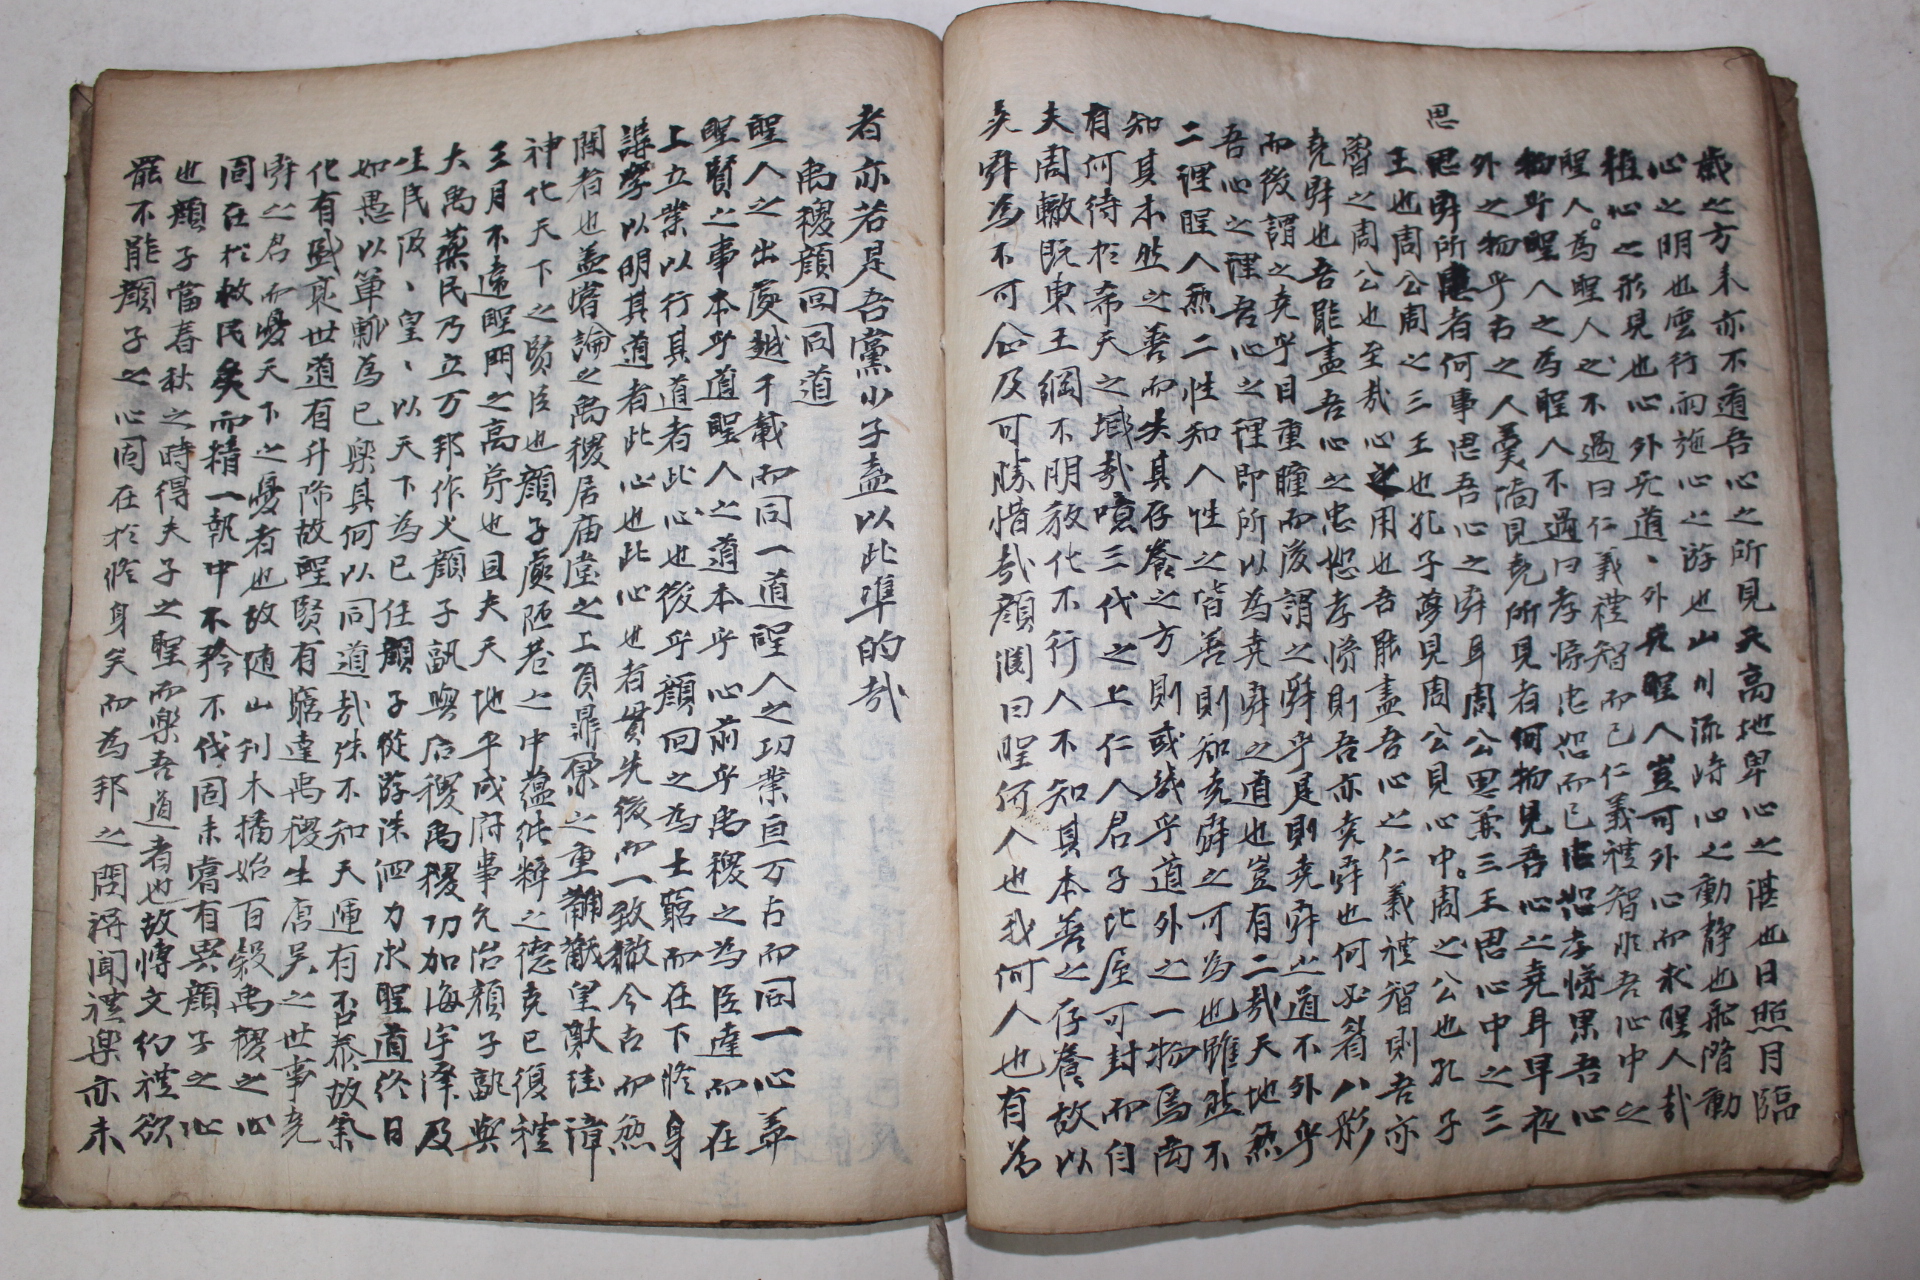 哉之方來亦不過吾心之所見天高地卑心之湛也日照月臨
心之明也雲行雨施心之游也山川流峙心之動靜也酡階動
植心之形見也心外无道、外无聖人豈可外心而求聖人哉
聖人。為聖人之不過曰仁義禮智而已仁義禮智非吾心中之
物乎聖人之為聖人不過曰孝悌忠恕而已忠恕孝悌果吾心
外之物乎古之人羹墻見堯所見者何物見吾心之堯耳早夜
思舜所思者何事思吾心之舜耳周公思兼三王思心中之三
思
王也周公周之三王也孔子夢見周公見心中。周之公也孔子
魯之周公也至哉心之用也吾能盡吾心之仁義禮智則吾亦
堯舜也吾能盡吾心之忠恕孝悌則吾亦堯舜也何必眉八彩
而後謂之堯乎目重瞳而後謂之舜乎是則堯舜之道不外乎
吾心之理吾心之理即所以為堯舜之道也豈有二哉天地無
二理聖人無二性知人性之皆善則知堯舜之可為也雖然不
知其本然之善而失其存養之方則或哉乎道外之一物為
有何待於希天之域哉噫三代之上仁人君子比屋可封而自
夫周轍既東王綱不明敎化不行人不知其本善之存養故以
堯舜為不可企及可勝惜哉顔淵曰聖何人也我何人也有為
者亦若是吾黨小子盍以此準的哉
禹稷顔回同道
聖人之出處越千載而同一道聖人之功業亘万古而同一心葢
聖賢之事本乎道聖人之道本乎心前乎禹稷之為臣達而在
上立業以行其道者此心也後乎顔回之為士窮而在下修身
講學以明其道者此心也此心也者貫先後而一致轍今古而無
間者也葢嘗論之禹稷居庙堂之上負鼎之重黼黻皇猷珪漳
神化天下之賢臣也顔子處陋巷之中蘊純粹之德克已復禮
三月不違聖門之高弟也且夫天地平成府事允治顔子孰與
大禹蒸民乃立万邦作乂顔子孰與后稷禹稷功加海宇澤及
生民汲、皇、以天下為已任顔子從游洙泗力求聖道終日
如愚以簞瓢為已樂其何以同道哉殊不知天運有否泰故氣
化有盛衰世道有升降故聖賢有窮達禹稷生唐吴之世事堯
舜之君而憂天下之憂者也故随山刋木播始百穀禹稷之心
固在於救民矣而精一執中不矜不伐固未嘗有異顔子之心
也顔子當春秋之時得夫子之聖而樂吾道者也故博文約禮欲
罷不能顔子之心固在於修身矣而為邦之問得聞禮樂亦未